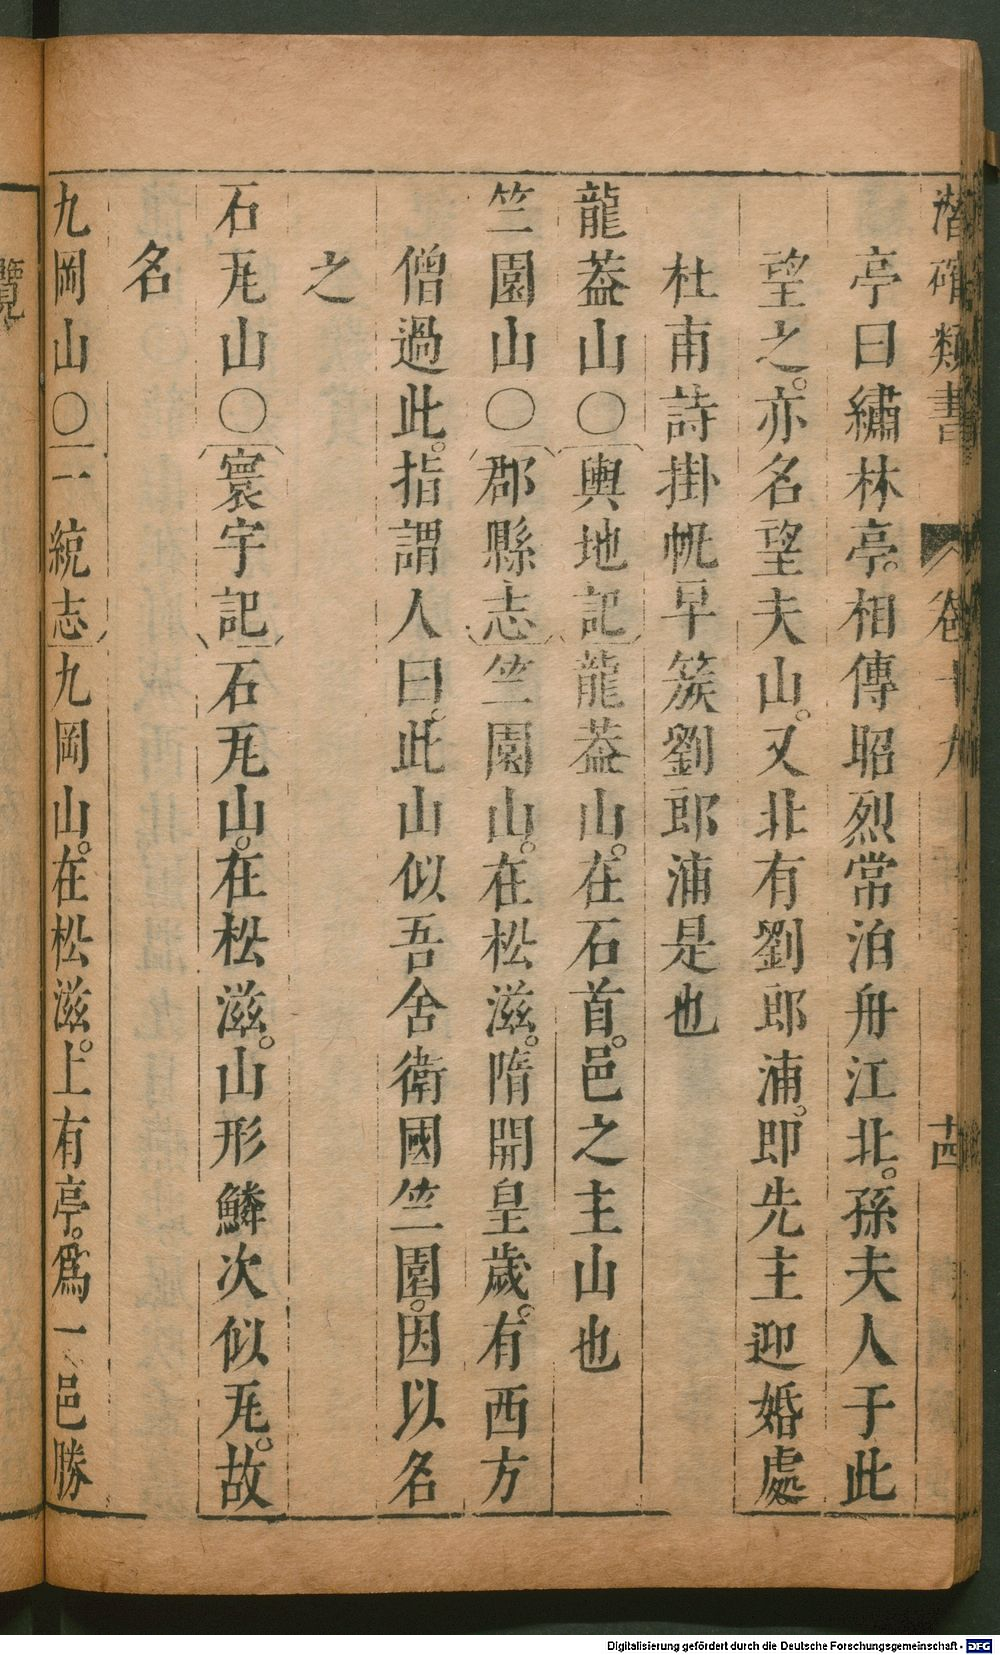 潛確類書 卷十九 十四
亭曰繡林亭。相傳昭烈常泊舟江北。孫夫人于此
望之。亦名望夫山。又北有劉郎浦。即先主迎婚處。
杜甫詩掛帆早簇劉郎浦是也
龍葢山〇輿地記龍葢山。在石首。邑之主山也
竺園山〇郡縣志竺園山。在松滋。隋開皇歲。有西方
僧過此。指謂人曰。此山似吾舍衛國竺園。因以名
之
石瓦山〇寰宇記石瓦山。在松滋。山形鱗次似瓦。故
名
九岡山〇一統志九岡山。在松滋。上有亭。爲一邑勝
覽
Digitalisierung gefördert durch die Deutsche Forschungsgemeinschaft - DFG